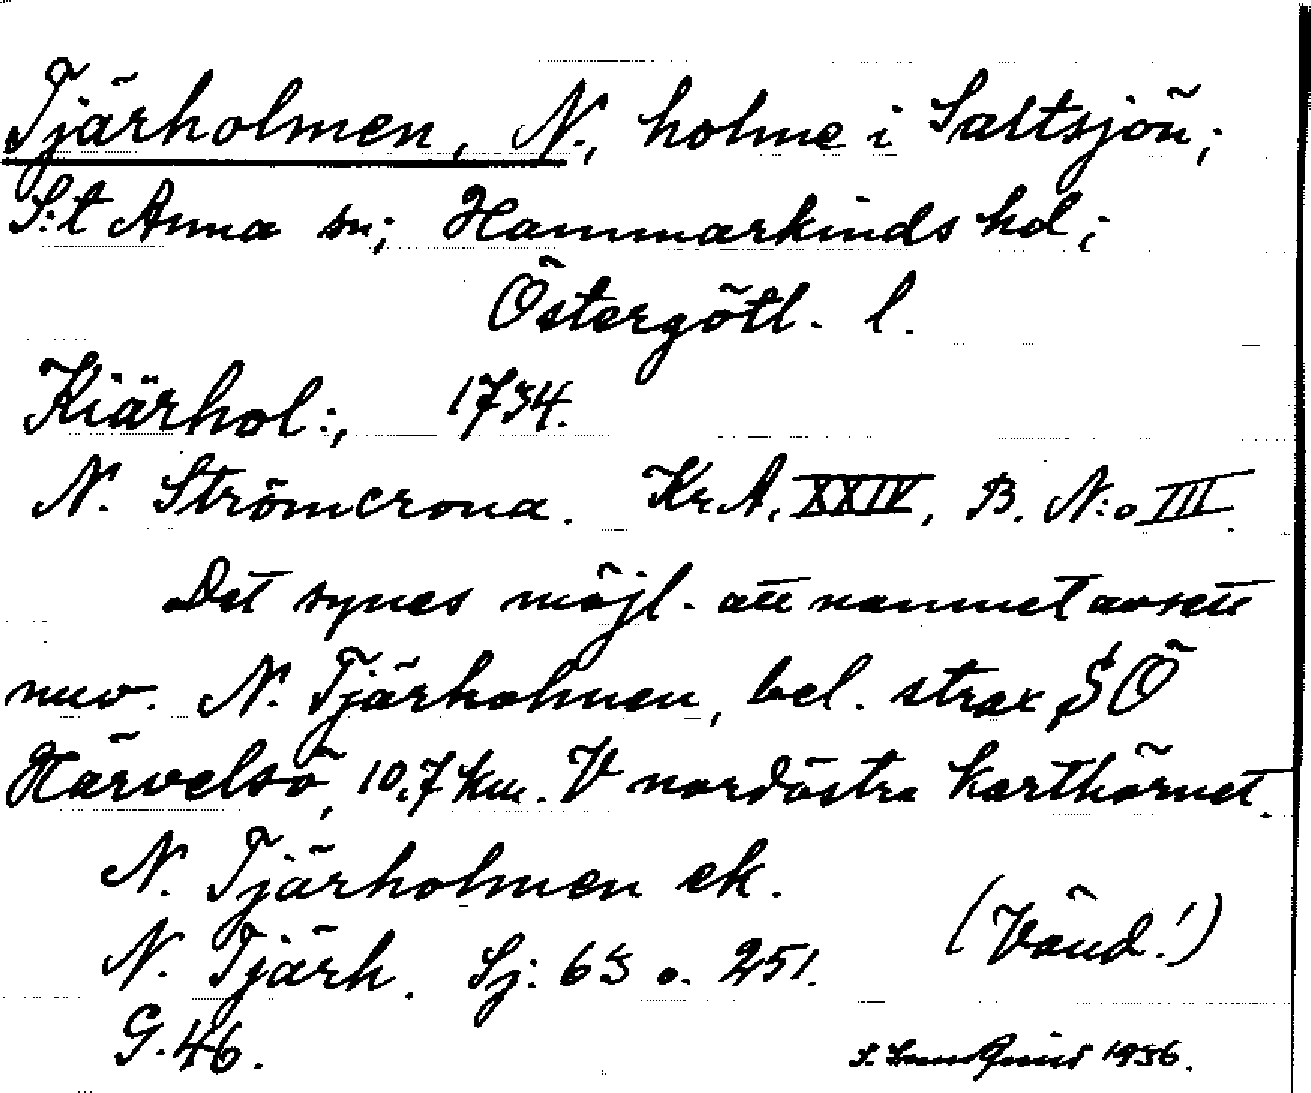 Tjärholmen, N., holme i Saltsjön;
S:t Anna sn; Hammarkinds hd;
Östergötl. l.
Kiärhol:, 1734.
N. Strömcrona. Kr.A. XXIV, B. N:o III.
Det synes möjl. att namnet avsett
nuv. N. Tjärholmen, bel. strax SÖ
Härvelsö, 10,7 km. V nordöstra karthörnet.
N. Tjärholmen ek.
N. Tjärh. Sj: 63 o. 251.
(Vänd!)
G. 46.
1936.